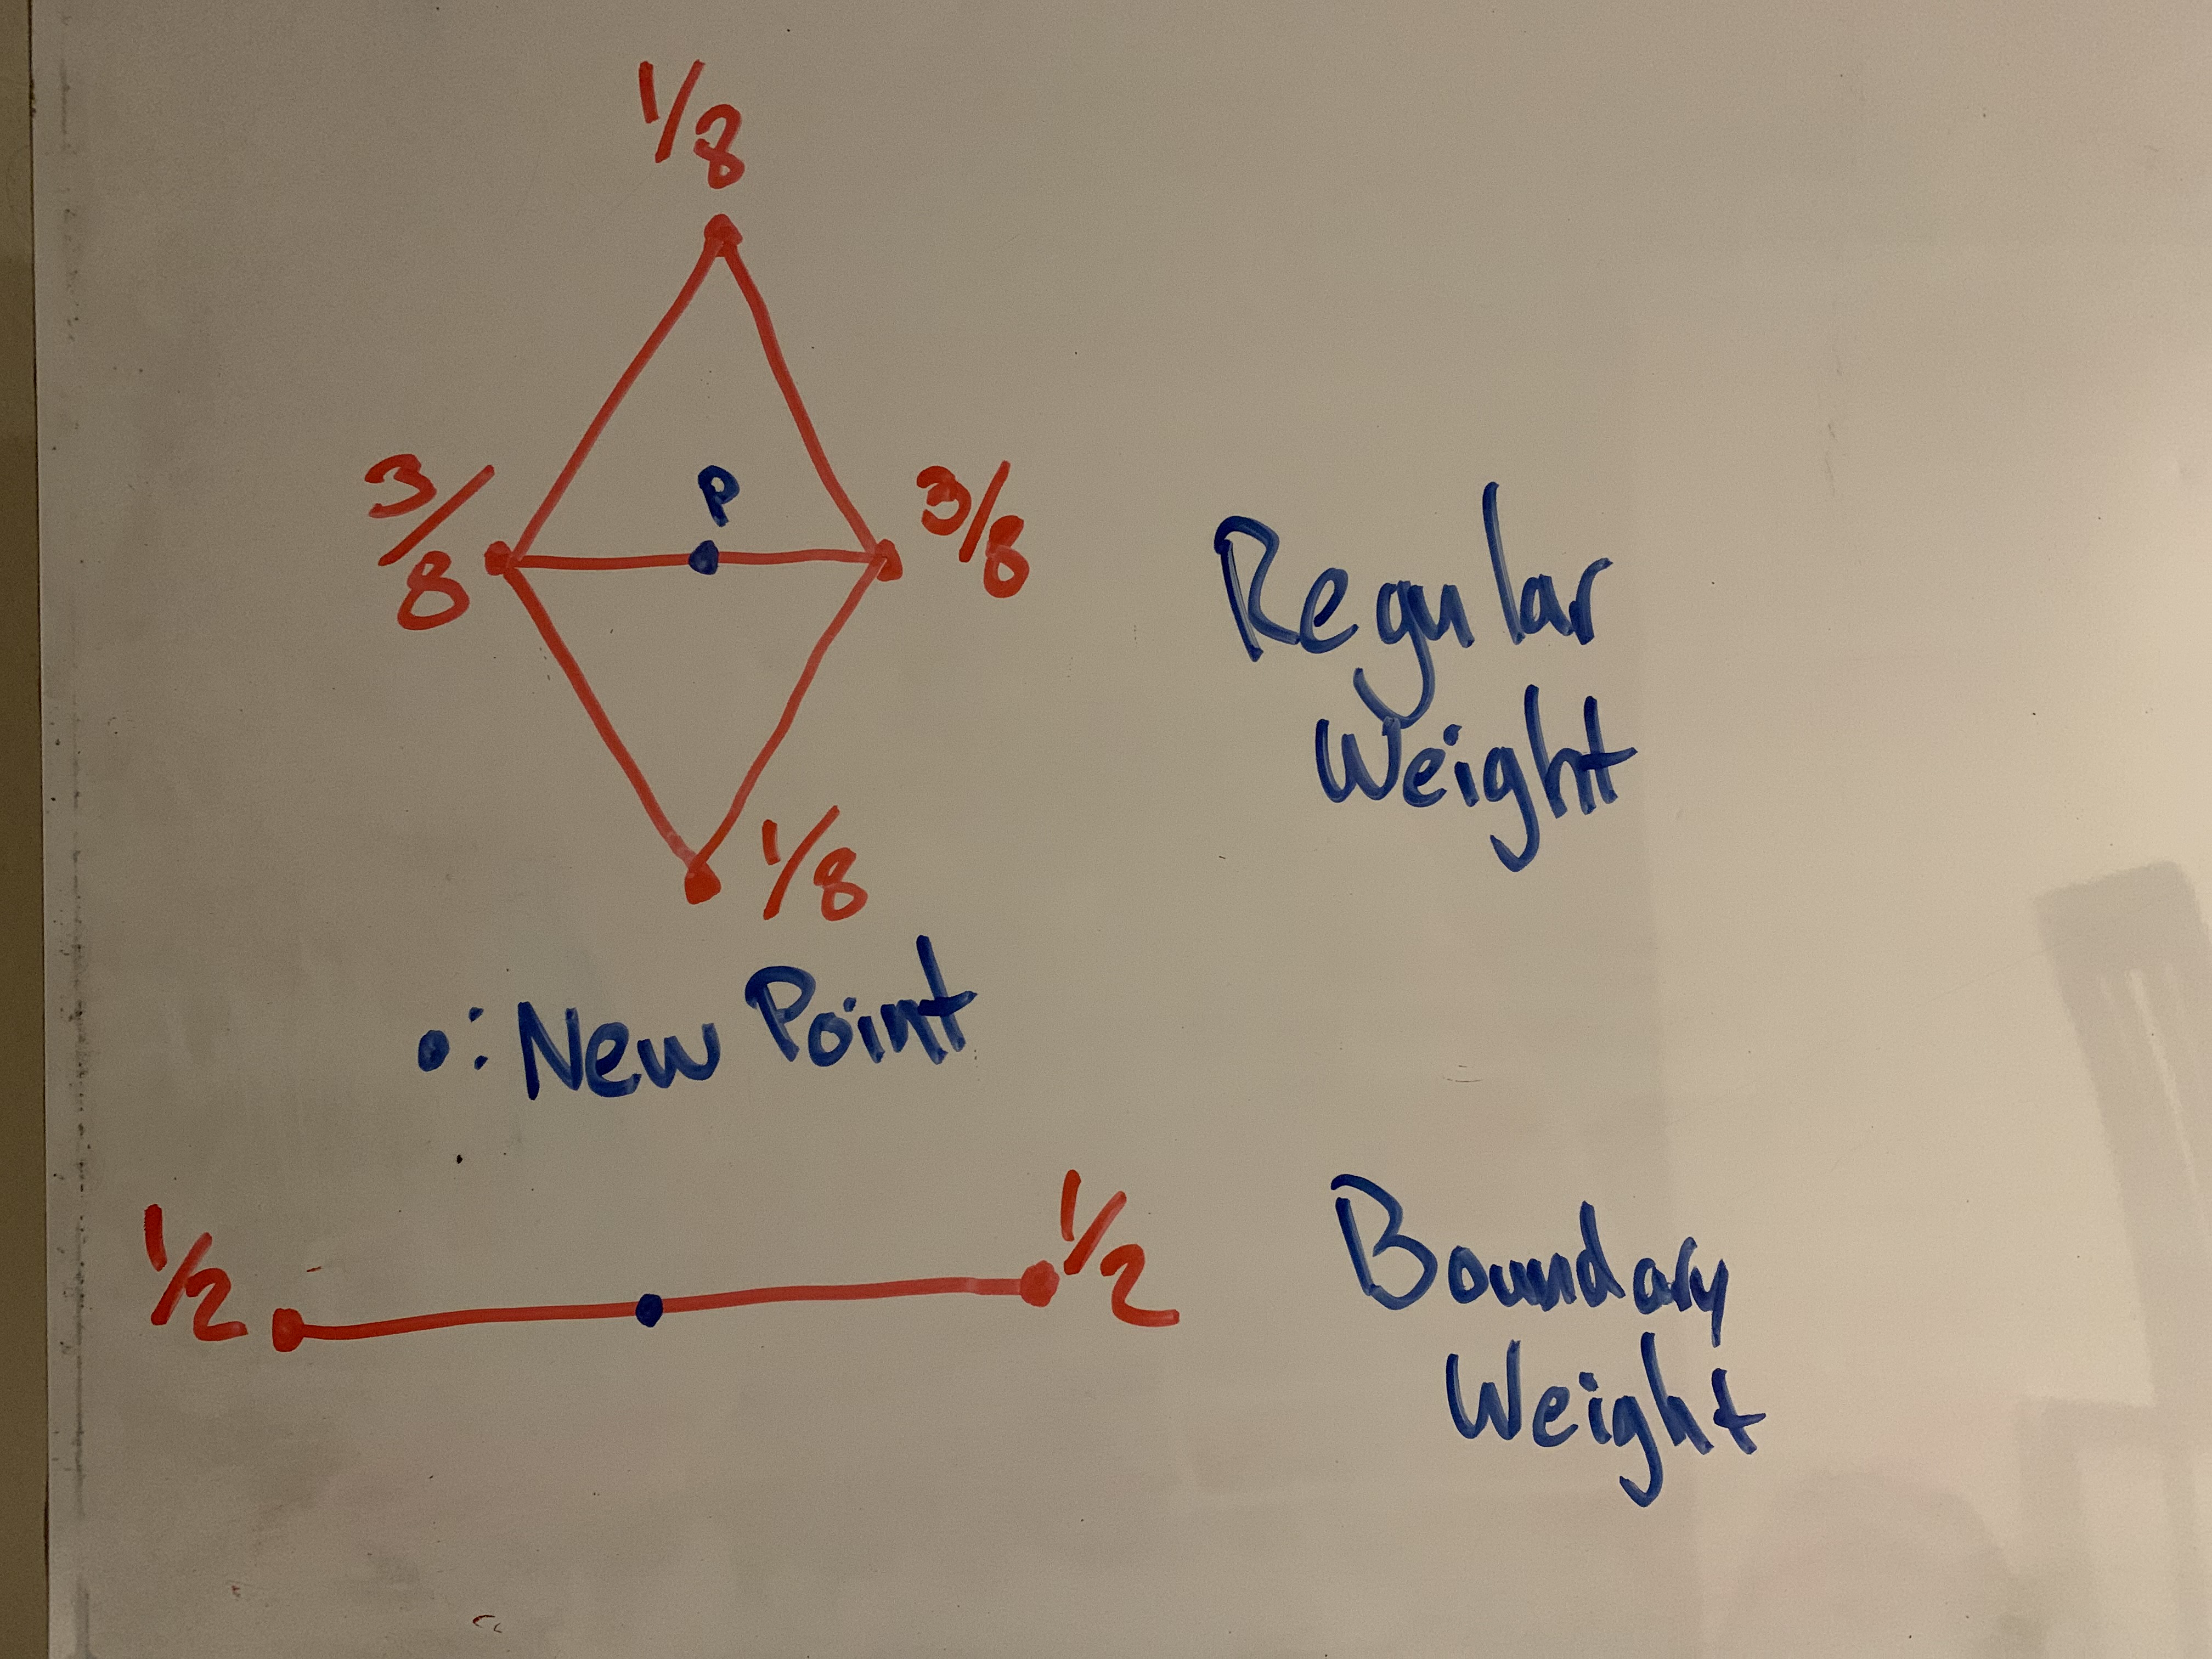 1/8
3/8
P
3/8
Regular
Weight
1/8
•: New Point
1/2
1/2
Boundary
Weight